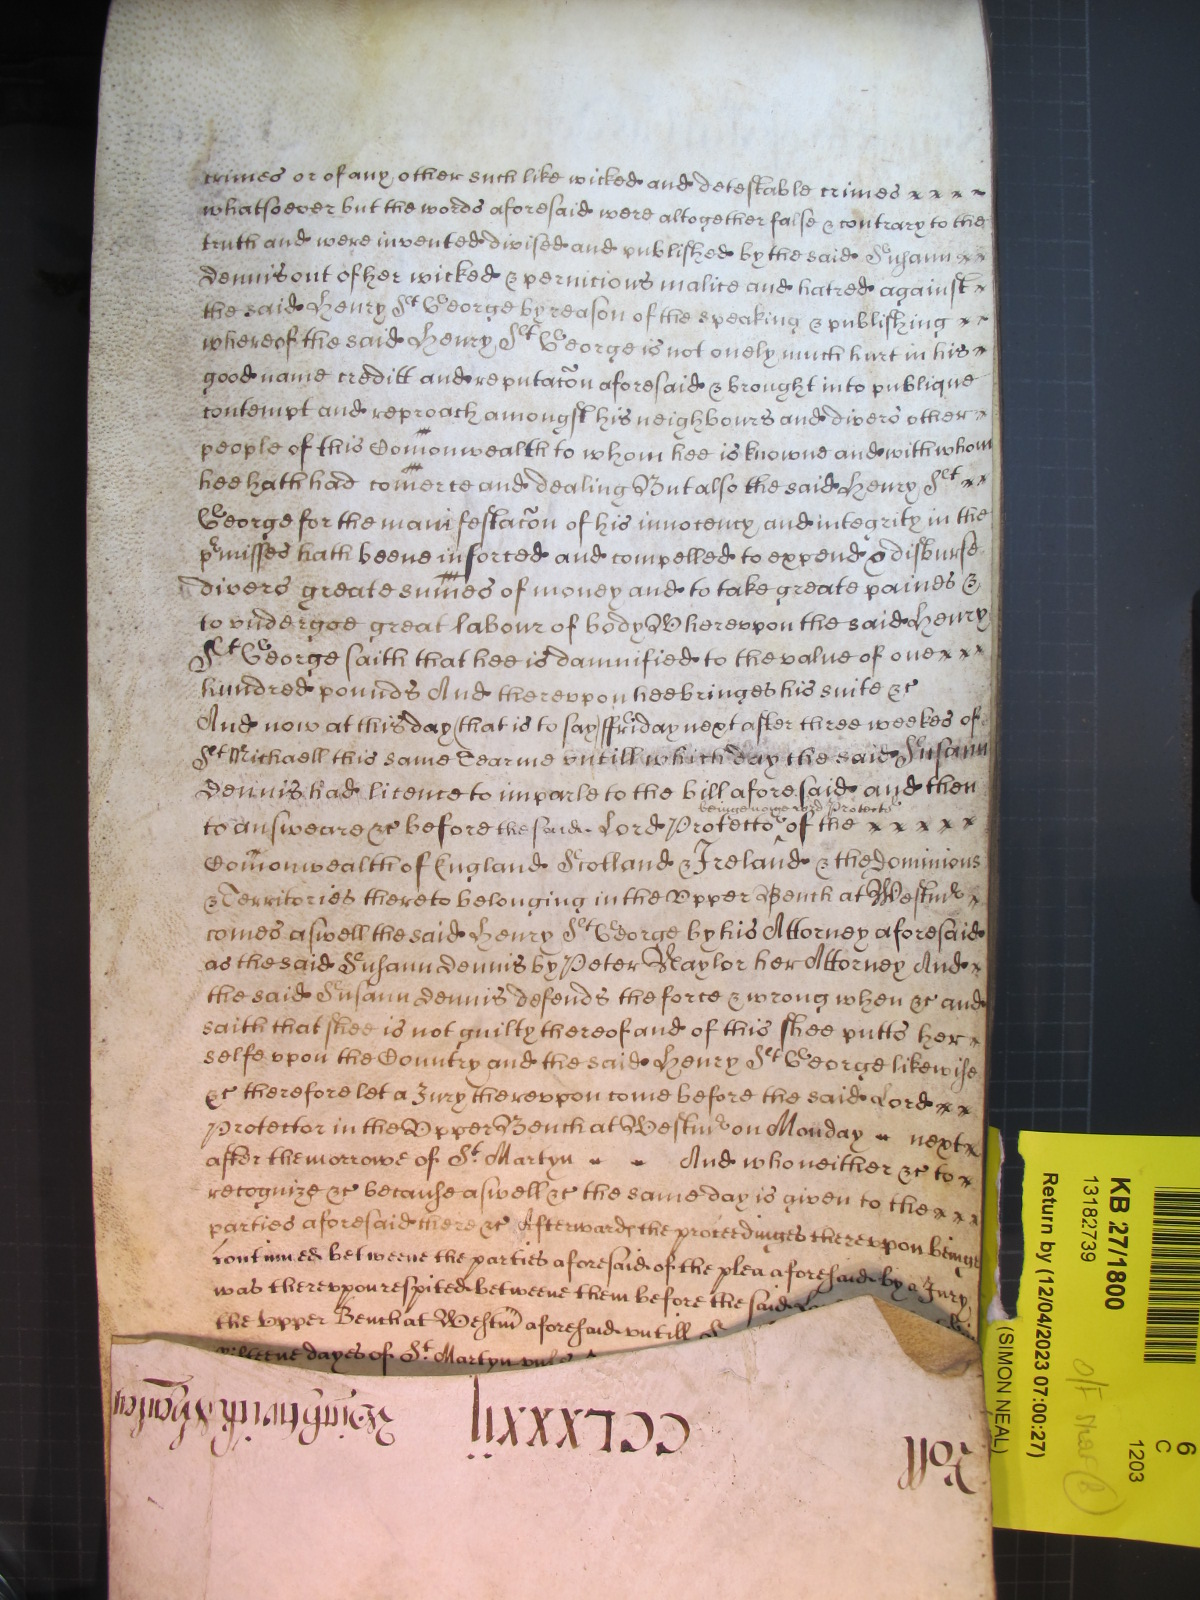 crimes or of any other such like wicked and detestable crimes x x x x
whatsoever but the words aforesaid were altogether false & contrary to the
truth and were invented divised and published by the said Susann x x
Dennis out of her wicked & pernicious malice and hatred against x
the said Henry St George by reason of the speaking & publishing x x
whereof the said Henry St George is not onely much hurt in his x
good name creditt and reputacōn aforesaid & brought into publique
contempt and reproach amongst his neighbours and divers other x
people of this Com̄onwealth to whom hee is knowne and with whom
hee hath had com̄erce and dealing But also the said Henry St x x
George for the manifestacōn of his innocency and integrity in the
p'misses hath beene inforced and compelled to expend & disburse
divers greate sum̄es of money and to take greate paines &
to undergoe great labour of body Whereupon the said Henry
St George saith that hee is damnified to the value of one x x x
hundred pounds And thereupon hee bringes his suite &c
And now at this day (that is to say) ffriday next after three weekes of
St Michaell this same Tearme untill which day the said Susann
Dennis had licence to imparle to the bill aforesaid and then
beinge nowe Lord Protector
to answeare &c before the said Lord Protector of the x x x x x
Com̄onwealth of England Scotland & Ireland & the Dominions
& Territories thereto belonging in the Upper Bench at Westm' x
comes aswell the said Henry St George by his Attorney aforesaid
as the said Susann Dennis by Peter Naylor her Attorney And x
the said Susann Dennis defends the force & wrong when &c and
saith that shee is not guilty thereof and of this shee putts her x
selfe upon the Country and the said Henry St George likewise
&c therefore let a Jury thereupon come before the said Lord x x
Protector in the Upper Bench at Westm' on Monday - next x
after the morrowe of St Martyn - - And who neither &c to x
recognize &c because aswell &c the same day is given to the x x x
parties aforesaid there &c Afterwards the proceedinges thereupon beinge
continued betweene the parties aforesaid of the plea aforesaid by a Jury
was thereupon respited betweene them before the said
the Upper Bench at Westm' aforesaid untill
dayes of St Martyn
CCLXXXII
Roll
KB 27/1800
13182739
Return by (12/04/2023 07:00:27)
(SIMON NEAL)
6
C
1203